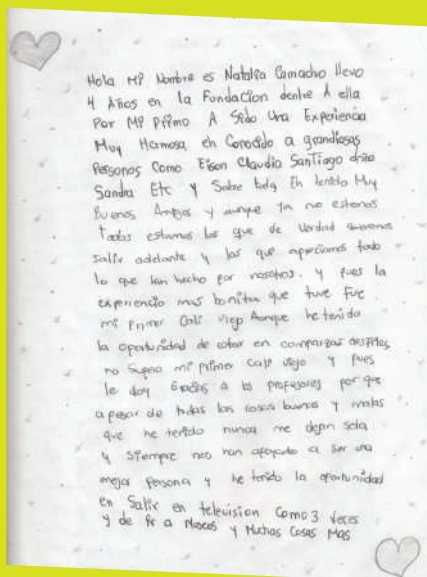 Hola MP Nombre es Natalia Camacho llevo
4 Años en la Fundacion dentre A ella
Por MP Primo A Sido Una Experiencia
Muy Hermosa eh Conocido a grandiosas
Personas Como Eison Claudia Santiago
Sandra Etc Y Sobre todo Eh tenido Muy
Buenos Amigos y aunque Ya no estemos
todos estamos los que de Verdad queremos
Salir adelante y los que apreciamos todo
lo que han hecho por nosotros. y pues la
experiencia mas bonita que tuve Fue
mi Primer Cali viejo Aunque he tenido
la oportunidad de estar en comparsas desfiles
no Supero mi primer Cali viejo y pues
le doy Gracias a los profesores por que
apesar de todas las cosas buenas y malas
que he tenido nunca me dejan sola
y Siempre nos han apoyado a ser una
mejor persona y he tenido la oportunidad
en Salir en television Como 3 Veces
y de Pr a Museos y Muchas Cosas Mas